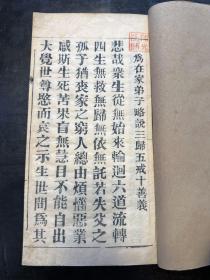 為在家弟子略說三歸五戒十善義
悲哉眾生從無始來輪迴六道流轉
四生無救無歸無依無託若失父之
孤子猶喪家之窮人總由煩惱惡業
感斯生死苦果盲無慧目不能自出
大覺世尊愍而哀之示生世間為其